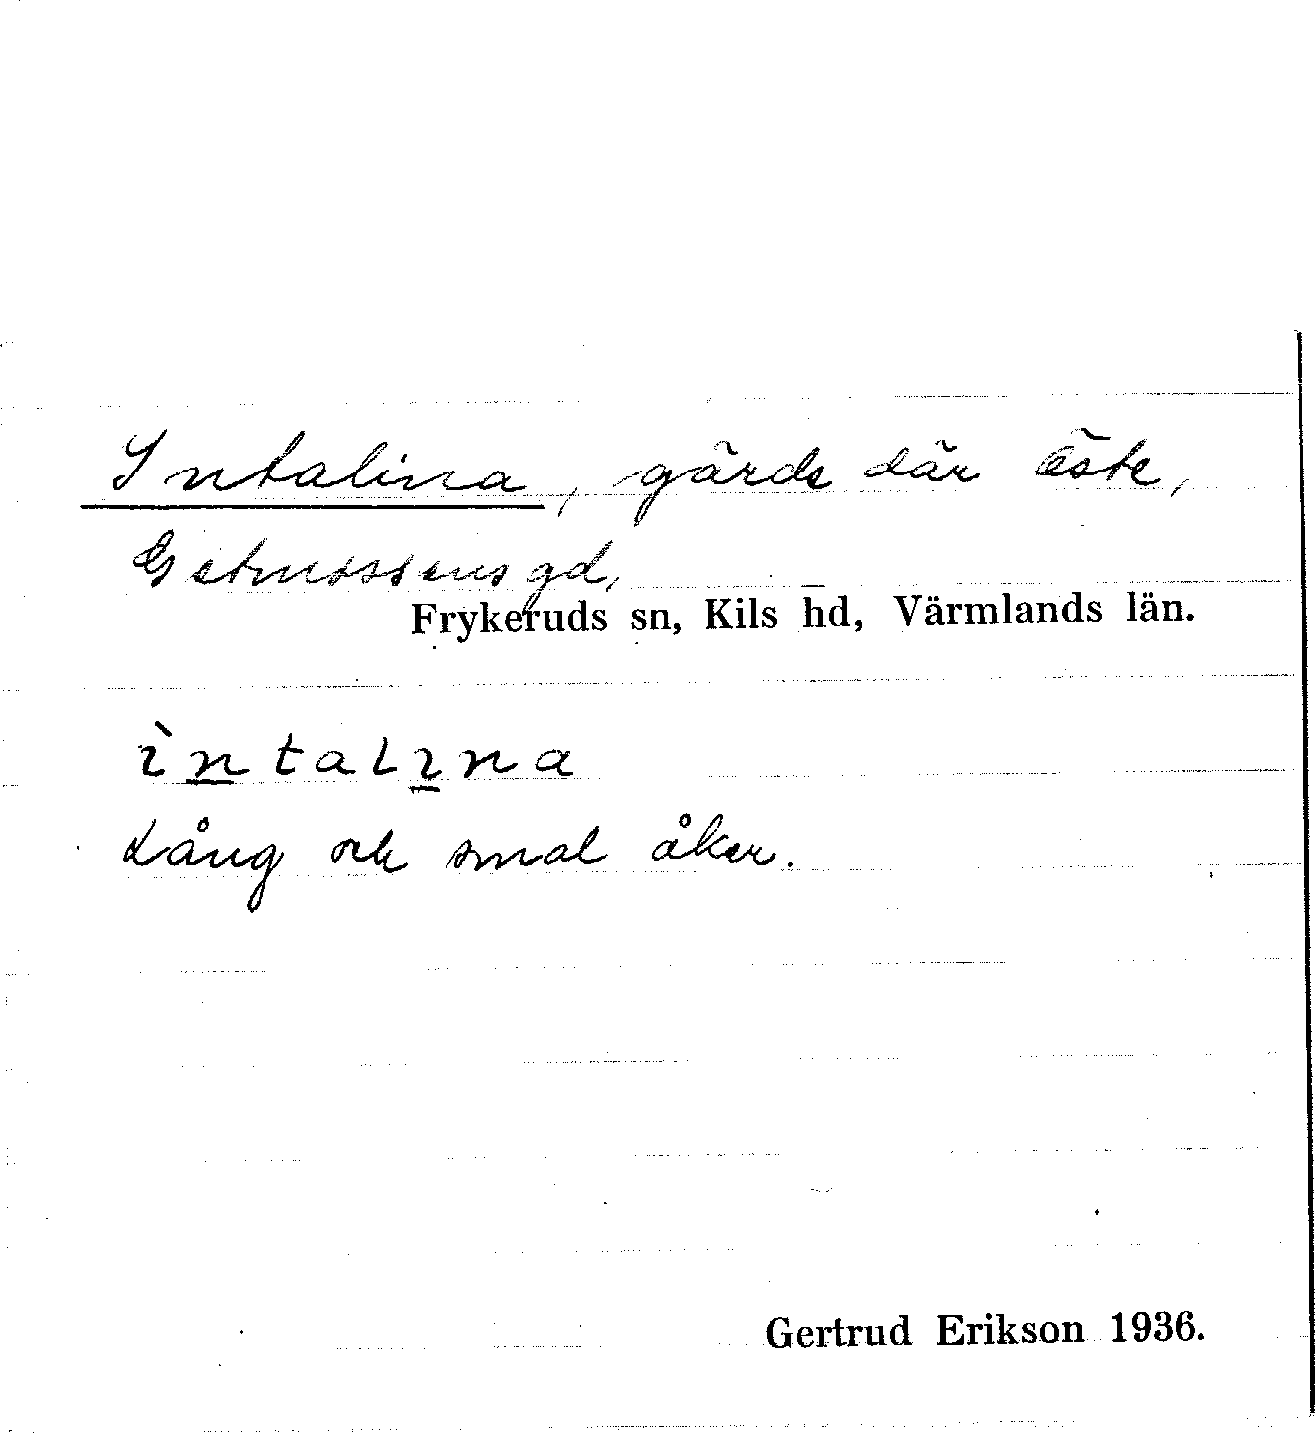 Intalina, gärde där öste,
Getmossens gd,
Frykeruds sn, Kils hd, Värmlands län.
ìntalına
Lång och smal åker.
Gertrud Erikson 1936.